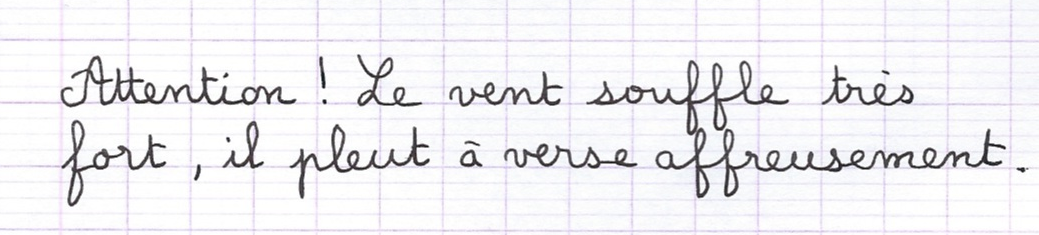 Attention ! Le vent souffle très
fort, il pleut à verse affreusement.